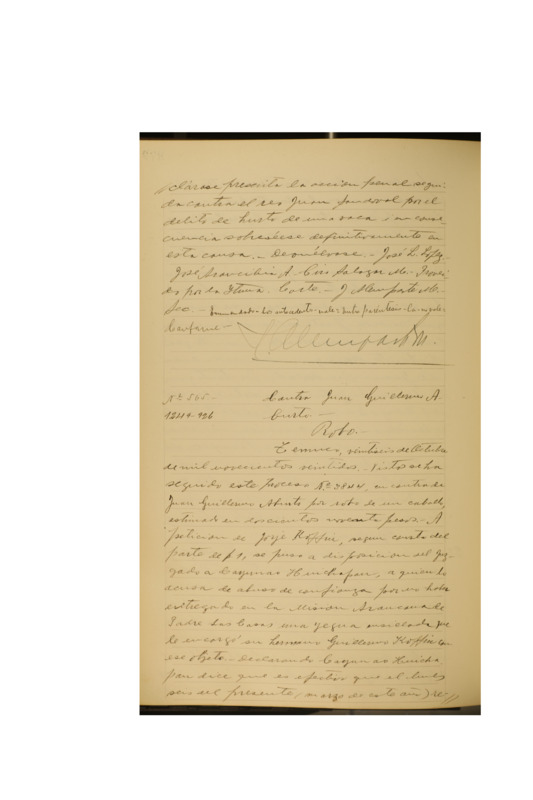 clárase prescrita la acción penal segui-
da contra el reo Juan Sandoval por el
delito de hurto de una vaca i en conse-
cuencia sobreséese definitivamente en
esta causa. - Devuélvase. - José L. López.
José Aravena A. Cés Salazar M. Provei-
do por la Iltma. Corte. - J Alemparte M.
Sec. -
Conforme -
Alemparte M.
Nº 505 -
Contra Juan Guillermo A.
burto. -
Robo. -
Temuco, veintiseis de Octubre
de mil novecientos veintidos. - Vistos: se ha
seguido este proceso Nº 3844, en contra de
Juan Guillermo Aburto por robo de un caballo,
estimado en doscientos noventa pesos. - A
petición de Jorge Koffin, segun consta del
parte de f 1, se puso a disposicion del Juz-
gado a Huinchapan, a quien lo
acusa de abuso de confianza por no haber
entregado en la Mision Araucana de
Padre Las Casas una yegua ensillada que
le encargó su hermano Guillermo Koffin con
ese objeto. - Declarando Huincha
pan dice que es efectivo que el lunes
seis del presente (marzo de este año) re-